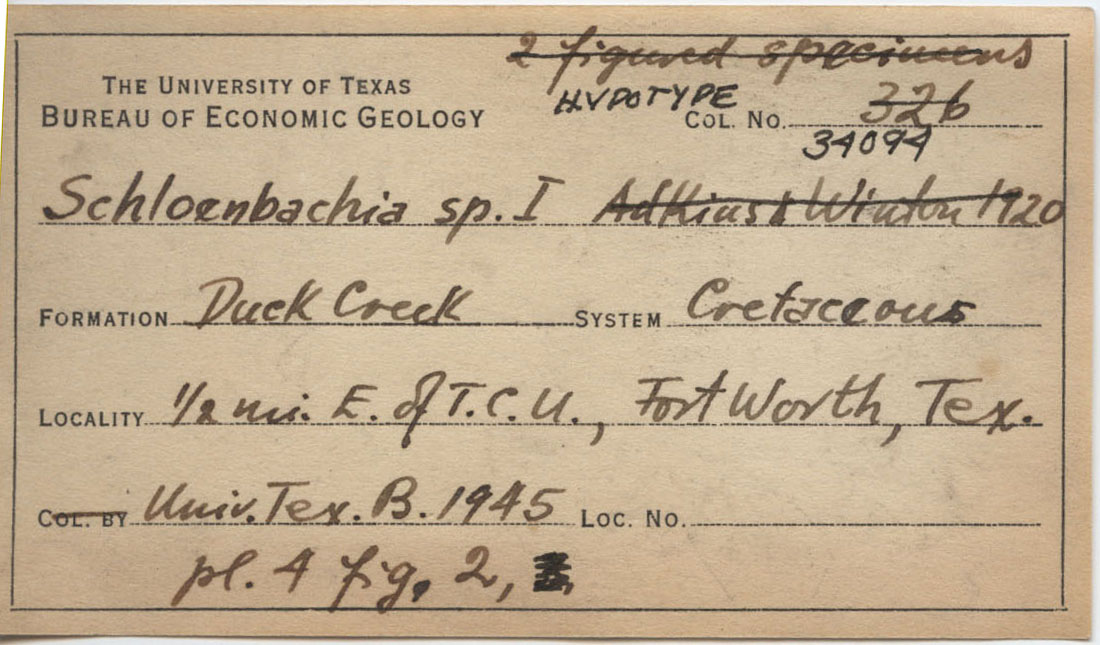 2 figured specimens
THE UNIVERSITY OF TEXAS
HYPOTYPE
BUREAU OF ECONOMIC GEOLOGY COL. NO. 326
34094
Schloenbachia sp. I Adkins & Winton 1920
FORMATION Duck Creek SYSTEM Cretaceous
LOCALITY 1/2 mi. E. of T.C.U., Fort Worth, Tex.
COL. BY Univ. Tex. B. 1945 LOC. NO.
pl. 4 fig. 2,